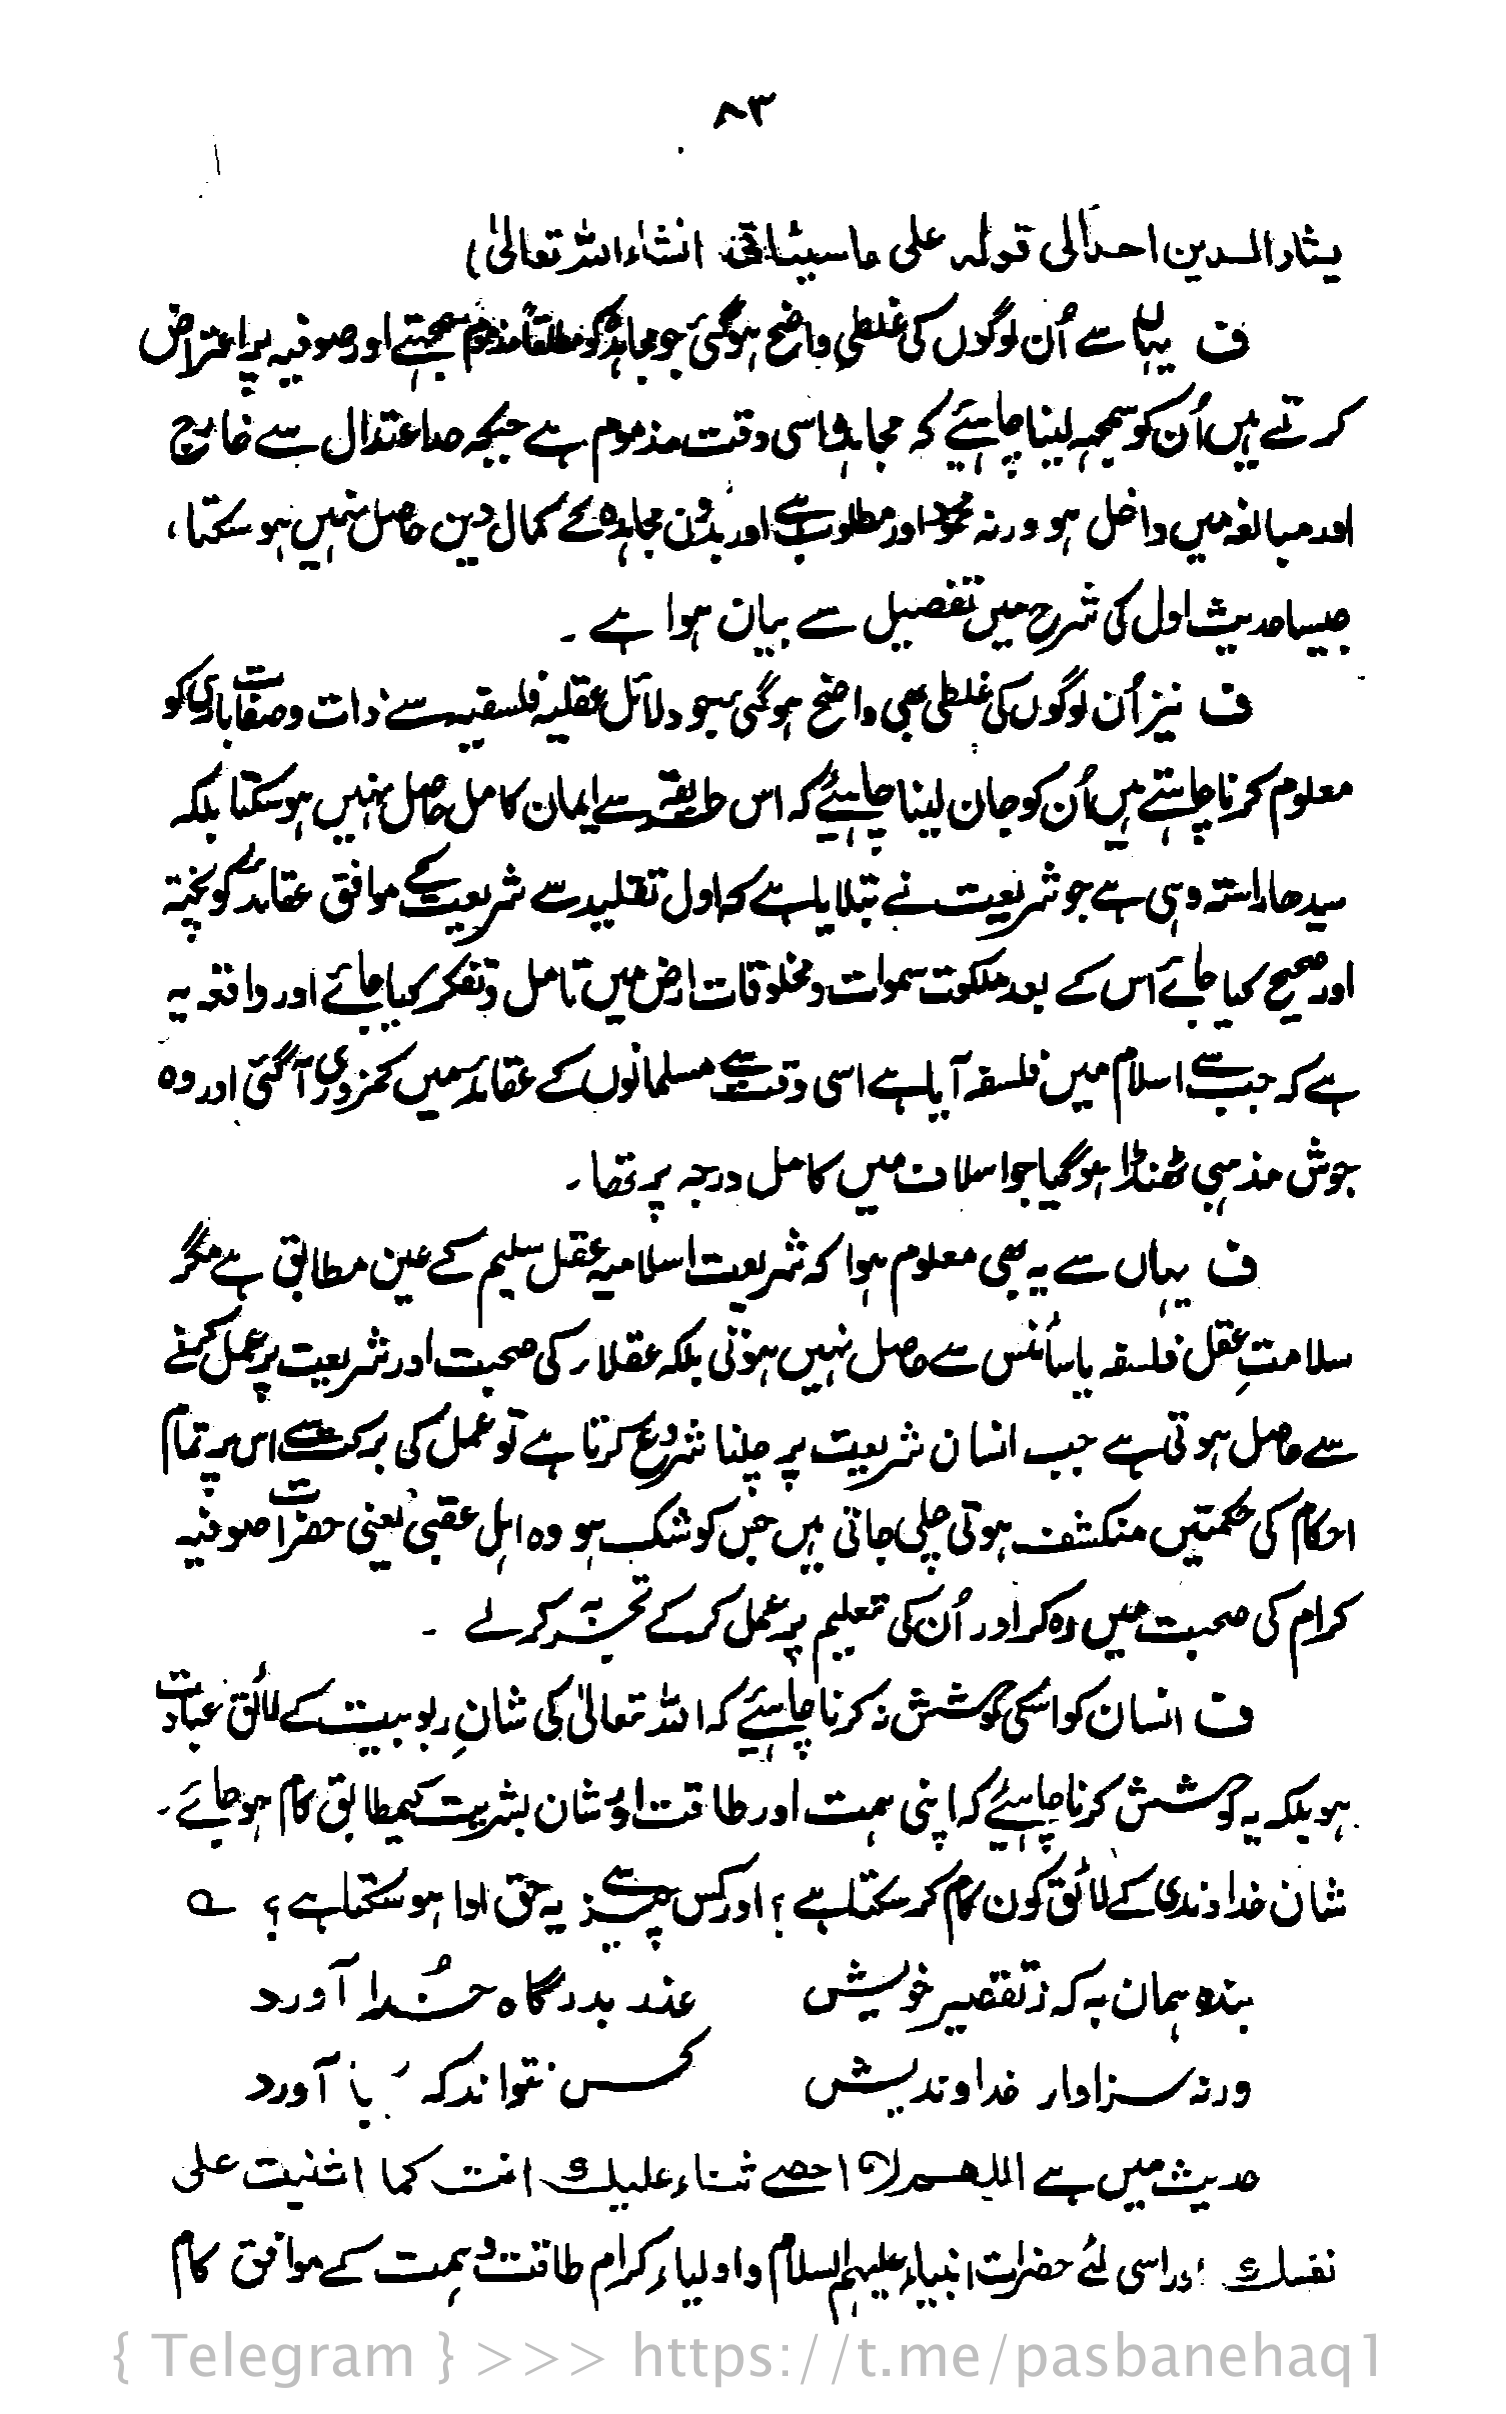 ۸۳
یشاد الدین احد الی قولہ علی ما سیتأتی انشاء اللہ تعالیٰ)
ف یہاں سے اُن لوگوں کی غلطی واضح ہوگئی جو مجاہدہ کو مطلقاً مذموم سمجھتے اور صوفیہ پر اعتراض
کرتے ہیں اُن کو سمجھ لینا چاہئیے کہ مجاہدہ اسی وقت مذموم ہے جبکہ حد اعتدال سے خارج
اور مبالغہ میں داخل ہو ورنہ محمود اور مطلوب ہے اور بدون مجاہدہ کے کمال دین حاصل نہیں ہو سکتا،
جیسا حدیث اول کی شرح میں تفصیل سے بیان ہوا ہے ۔
ف نیز اُن لوگوں کی غلطی بھی واضح ہوگئی جو دلائل عقلیہ فلسفیہ سے ذات و صفات باری کو
معلوم کرنا چاہتے ہیں اُن کو جان لینا چاہئیے کہ اس طریقہ سے ایمان کامل حاصل نہیں ہو سکتا بلکہ
سیدھا راستہ وہی ہے جو شریعت نے بتلایا ہے کہ اول تقلید سے شریعت کے موافق عقائد کو پختہ
اور صحیح کیا جائے اس کے بعد ملکوت سموات و مخلوقات ارض میں تامل و تفکر کیا جائے اور واقعہ یہ
ہے کہ جب سے اسلام میں فلسفہ آیا ہے اسی وقت سے مسلمانوں کے عقائد میں کمزوری آگئی اور وہ
جوش مذہبی ٹھنڈا ہوگیا جو اسلاف میں کامل درجہ پر تھا ۔
ف یہاں سے یہ بھی معلوم ہوا کہ شریعت اسلامیہ عقل سلیم کے عین مطابق ہے مگر
سلامتِ عقل فلسفہ یا سائنس سے حاصل نہیں ہوتی بلکہ عقلاء کی صحبت اور شریعت پر عمل کرنے
سے حاصل ہوتی ہے جب انسان شریعت پر چلنا شروع کرتا ہے تو عمل کی برکت سے اس پر تمام
احکام کی حکمتیں منکشف ہوتی چلی جاتی ہیں جس کو شک ہو وہ اہل عقبیٰ یعنی حضرات صوفیہ
کرام کی صحبت میں رہ کر اور اُن کی تعلیم پر عمل کرکے تجربہ کرلے ۔
ف انسان کو اسکی کوشش نہ کرنا چاہئیے کہ اللہ تعالیٰ کی شانِ ربوبیت کے لائق عبادت
ہو بلکہ یہ کوشش کرنا چاہئیے کہ اپنی ہمت اور طاقت اور شان بشریت کیمطابق کام ہو جائے ۔
شان خداوندی کے لائق کون کام کر سکتا ہے ؟ اور کس چیز سے یہ حق ادا ہو سکتا ہے ؟ ؎
بندہ ہمان بہ کہ ز تقصیر خویش عذر بدرگاہ خُدا آورد
ورنہ سزاوار خداوندیش کس نتواند کہ بجا آورد
حدیث میں ہے اللہم لا احصی ثناء علیک انت کما اثنیت علی
نفسک اور اسی لئے حضرات انبیاء علیہم السلام و اولیاء کرام طاقت و ہمت کے موافق کام
{ Telegram } >>> https://t.me/pasbanehaq1